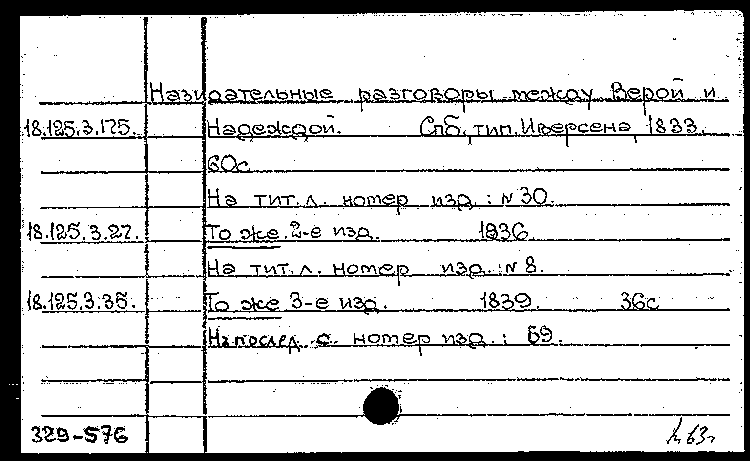 Назидательные разговоры между Верой и
18.125.3.175. Надеждой. Спб., тип. Иверсена, 1833.
60с
На тит. л. номер изд.: N 30.
18.125.3.27. То же. 2-е изд. 1836
На тит. л. номер изд.: N 8.
18.125.3.35. То же 3-е изд. 1839. 36с
На послед. с. номер изд.: 59.
329-576